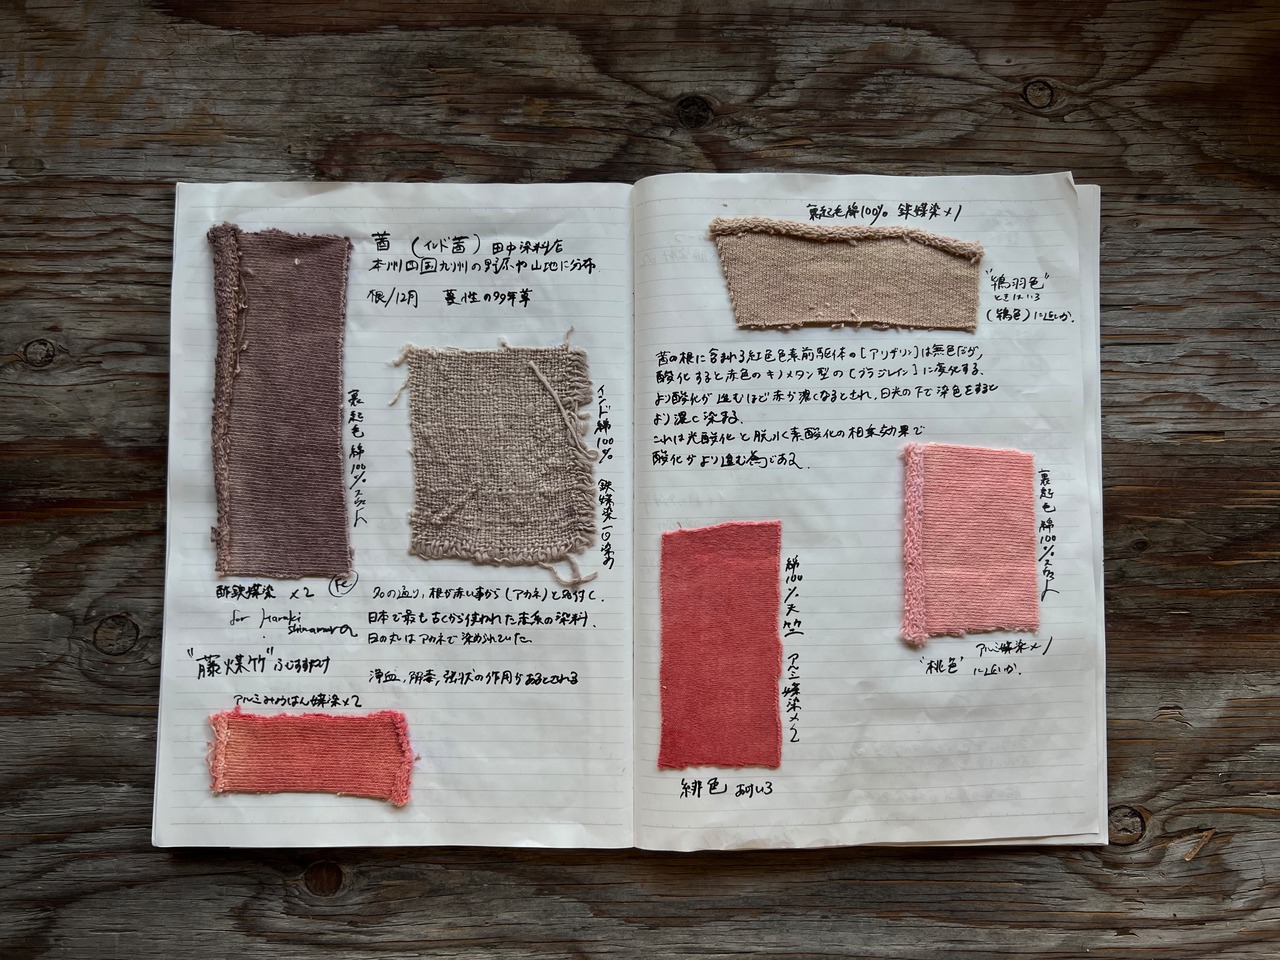 茜 (インド茜) 田中染料店
本州四国九州の野原や山地に分布
根/12月 蔓性の多年草
裏起毛綿100%スウェット
インド綿100% 鉄媒染一回染め
酢鉄媒染 ×2 Fe
for Haruki
shimamura
"藤煤竹" ふじすすたけ
名の通り、根が赤い事から(アカネ)と名付く。
日本で最も古くから使われた赤系の染料。
日の丸はアカネで染められていた。
浄血、解毒、強壮の作用があるとされる
アルミみょうばん媒染×2
裏起毛綿100% 鉄媒染×1
"鴇羽色"
ときはいろ
(鴇色)に近いか。
茜の根に含まれる紅色色素前駆体の[アリザリン]は無色だが、
酸化すると赤色のキノメタン型の[ブラジレイン]に変化する。
より酸化が進むほど赤が濃くなるとされ、日光の下で染色をすると
より濃く染まる。
これは光酸化と脱水素酸化の相乗効果で
酸化がより進む為である。
裏起毛綿100%スウェット
アルミ媒染×1
"桃色"に近いか。
綿100%天竺 アルミ媒染×2
緋色 あけいろ